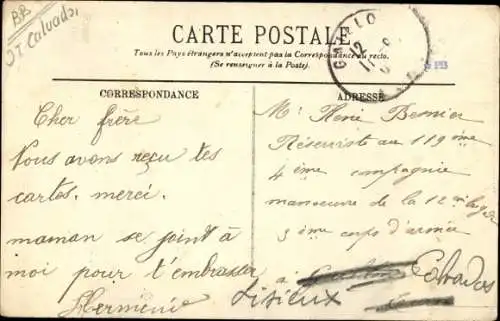 BB
Calvados
CARTE POSTALE
Tous les Pays étrangers n'acceptent pas la Correspondance au recto.
(Se renseigner à la Poste).
CORRESPONDANCE
Cher frère
Nous avons reçu tes
cartes. merci.
maman se joint à
moi pour t'embrasser
Herminie
ADRESSE
Mr René Bernier
Réserviste au 119 me
4 ème compagnie
manoeuvre de la 12 me
3 ème corps d'armée
à Calvados
Lisieux